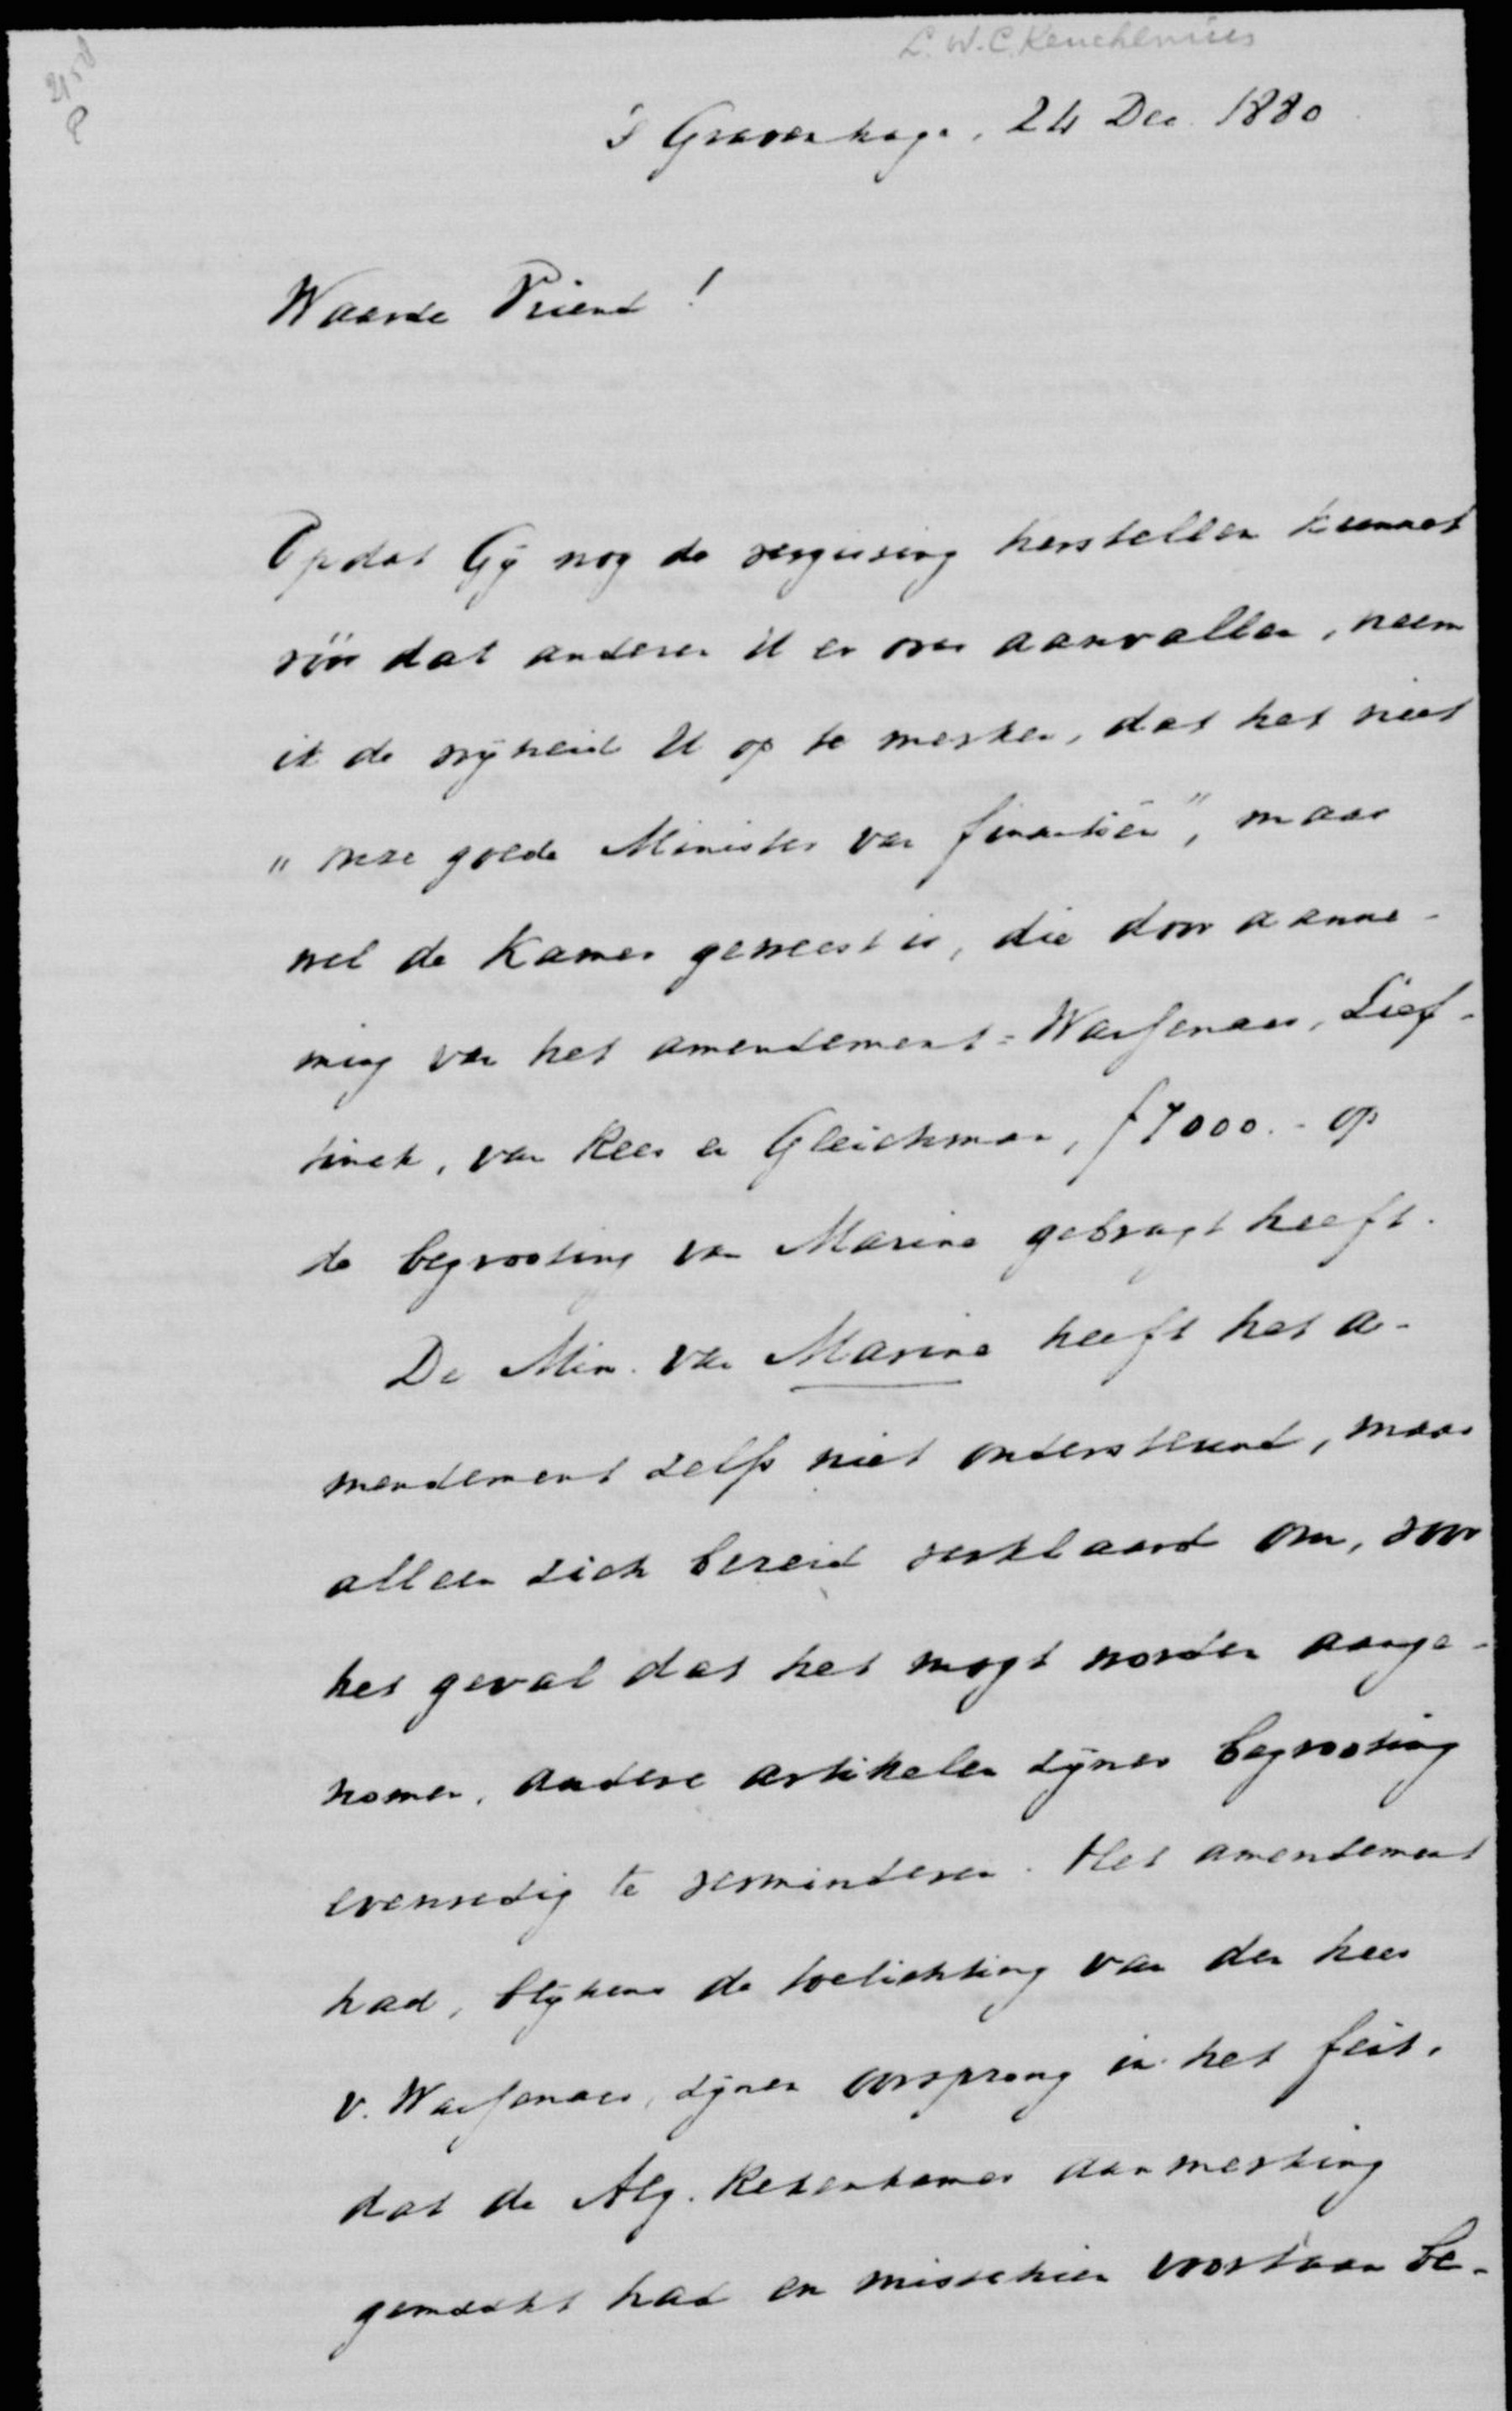 L.W.C. Keuchenius
's Gravenhage, 24 Dec. 1880
Waarde Vriend!
Opdat Gij nog de vergissing herstellen kunnet
vóór dat anderen U er over aanvallen, neem
ik de vrijheid U op te merken, dat het niet
"onze goede Minister van financiën", maar
wel de Kamer geweest is, die door aanne-
ming van het amendement-Wassenaer, Lief-
tinck, van Rees en Gleichman, f 7000.- op
de begrooting van Marine gebragt heeft.
De Min. van Marine heeft het a-
mendement zelfs niet ondersteund, maar
alleen zich bereid verklaard om, voor
het geval dat het mogt worden aange-
nomen, andere artikelen zijner begrooting
evenredig te verminderen. Het amendement
had, blijkens de toelichting van den heer
v. Wassenaer, zijnen oorsprong in het feit,
dat de Alg. Rekenkamer aanmerking
gemaakt had en misschien voortaan be-